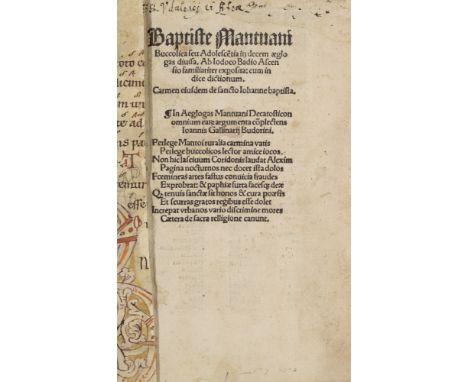 Baptiste Mantuani
Buccolica seu Adolescẽtia in decem æglo
gas diuisa. Ab Iodoco Badio Ascen
sio familiariter exposita: cum in
dice dictionum.
Carmen eiusdem de sancto Iohanne baptista.
¶ In Aeglogas Mantuani Decatosticon
omnium earũ argumenta cõplectens
Ioannis Gallinarij Budorini.
Perlege Mantoi ruralia carmina vatis
Perlege buccolicos lector amice iocos.
Non hic lasciuum Coridonis laudat Alexim
Pagina nocturnos nec docet ista dolos
Fœmineas artes fastus conuicia fraudes
Exprobrat: & paphiæ furta facesq; deæ
Q̃ tenuis sanctæ sit honos & cura poæsis
Et scurras gratos regibus esse dolet
Increpat vrbanos vario discrimine mores
Cætera de sacra relligione canunt.